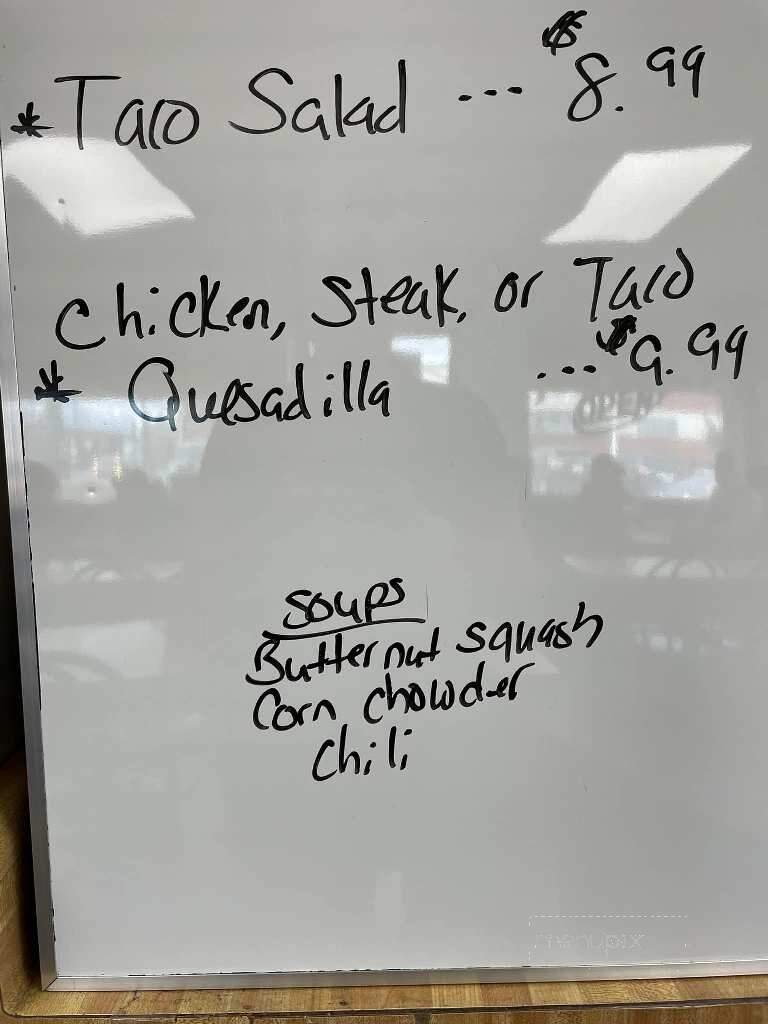 * Taco Salad ... $8.99
Chicken, Steak, or Taco
* Quesadilla ... $9.99
OPEN
Soups
Butternut squash
Corn chowder
Chili
menupix